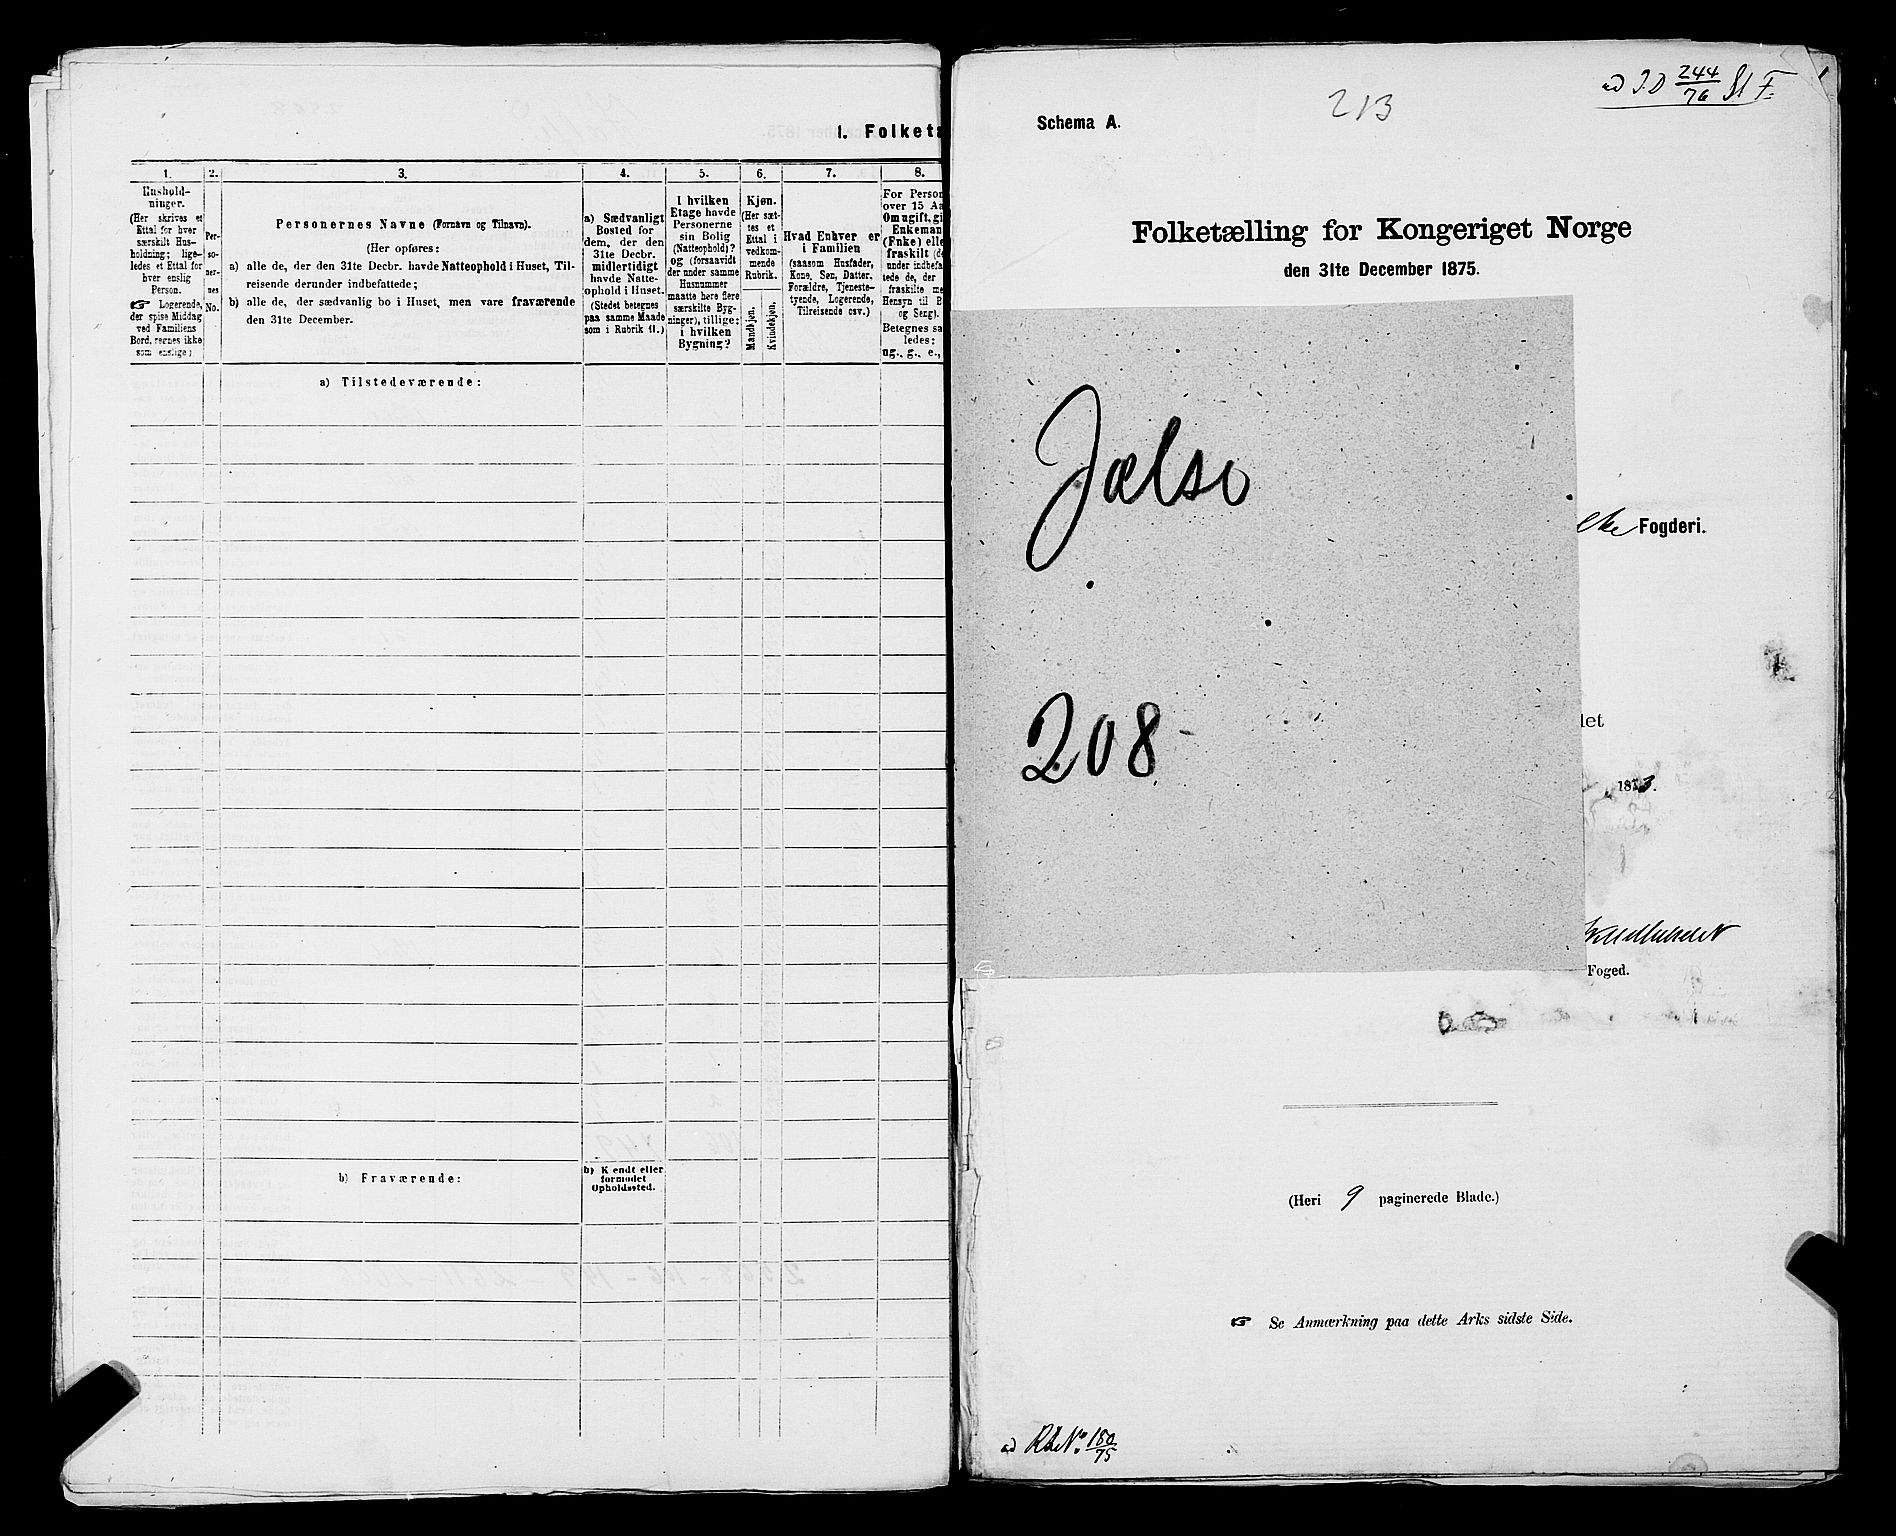 I. Folket
1.
2.
3.
4.
5.
6.
7.
8.
Hushold-
ninger.
(Her skrives et
Ettal for hver
særskilt Hus-
holdning; lige-
ledes et Ettal for
hver enslig
Person.
☞ Logerende,
der spise Middag
ved Familiens
Bord, regnes ikke
som enslige)
Per-
so-
ner-
nes
No.
Personernes Navne (Fornavn og Tilnavn).
(Her opføres:
a) alle de, der den 31te Decbr. havde Natteophold i Huset, Til-
reisende derunder indbefattede;
b) alle de, der sædvanlig bo i Huset, men vare fraværende
den 31te December.
a) Sædvanligt
Bosted for
dem, der den
31te Decbr.
midlertidigt
havde Natte-
ophold i Huset.
(Stedet betegnes
paa samme Maade
som i Rubrik 11.)
I hvilken
Etage havde
Personerne
sin Bolig
(Natteophold)?
og (forsaavidt
der under samme
Husnummer
maatte høre flere
særskilte Byg-
ninger), tillige:
i hvilken
Bygning?
Kjøn.
(Her sæt-
tes et
Ettal i
vedkom-
mende
Rubrik.
Mandkjøn.
Kvindekjøn.
Hvad Enhver er
i Familien
(saasom Husfader,
Kone, Søn, Datter,
Forældre, Tjeneste-
tyende, Logerende,
Tilreisende osv.)
For Person
over 15 Aa
Om ugift, gi
Enkeman
(Enke) elle
fraskilt (de
under indbefa
tede de, der
fraskilte me
Hensyn til B
og Seng).
Betegnes sa
ledes:
ug., g., e.,
a) Tilstedeværende:
b) Fraværende:
b) Kjendt eller
formodet
Opholdssted.
ad J.D 244/76 St F.
213
Schema A.
Folketælling for Kongeriget Norge
den 31te December 1875.
Fogderi.
Jælsø
208
let
1873.
Foged.
(Heri 9 paginerede Blade.)
☞ Se Anmærkning paa dette Arks sidste Side.
ad RdeNo. 180/75